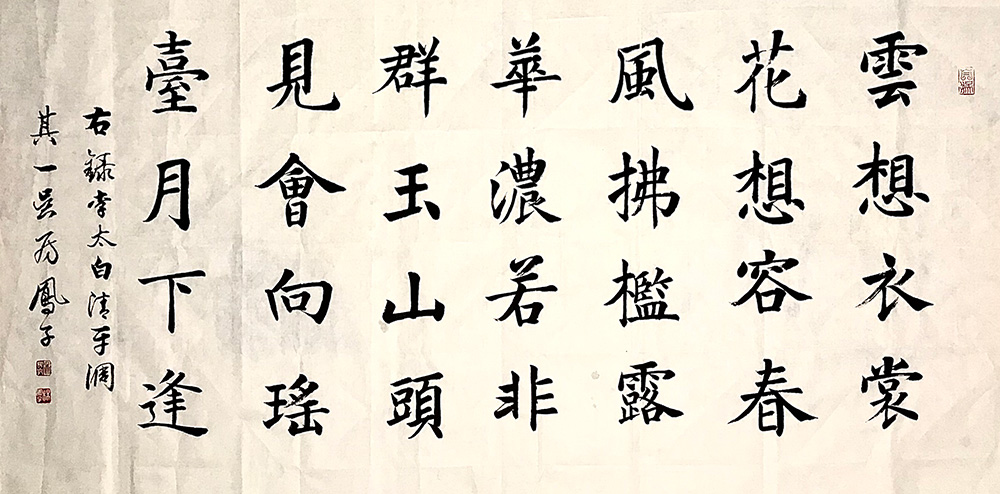 雲想衣裳
花想容春
風拂檻露
華濃若非
群玉山頭
見會向瑤
臺月下逢
右錄李太白清平調
其一吳門鳳子